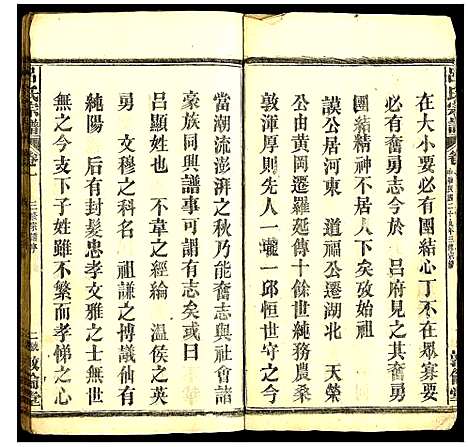 呂氏宗譜
卷
在大小要必有團結心丁不在衆寡要
必有奮勇志今於 呂府見之其奮勇
團結精神不居人下矣攷始祖
謨公居河東 道福公遷湖北 天榮
公由黃岡遷羅延傳十餘世純務農桑
敦渾厚則先人一壠一邱恒世守之今
當潮流澎湃之秋乃能奮志與社會諸
豪族同興譜事可謂有志矣或曰
呂顯姓也 不韋之經綸 溫侯之英
勇 文穆之科名 祖謙之博議他有
純陽 后有封髮忠孝文雅之士無世
無之今支下子姓雖不繁而孝悌之心
呂氏宗譜
卷
敦倫堂